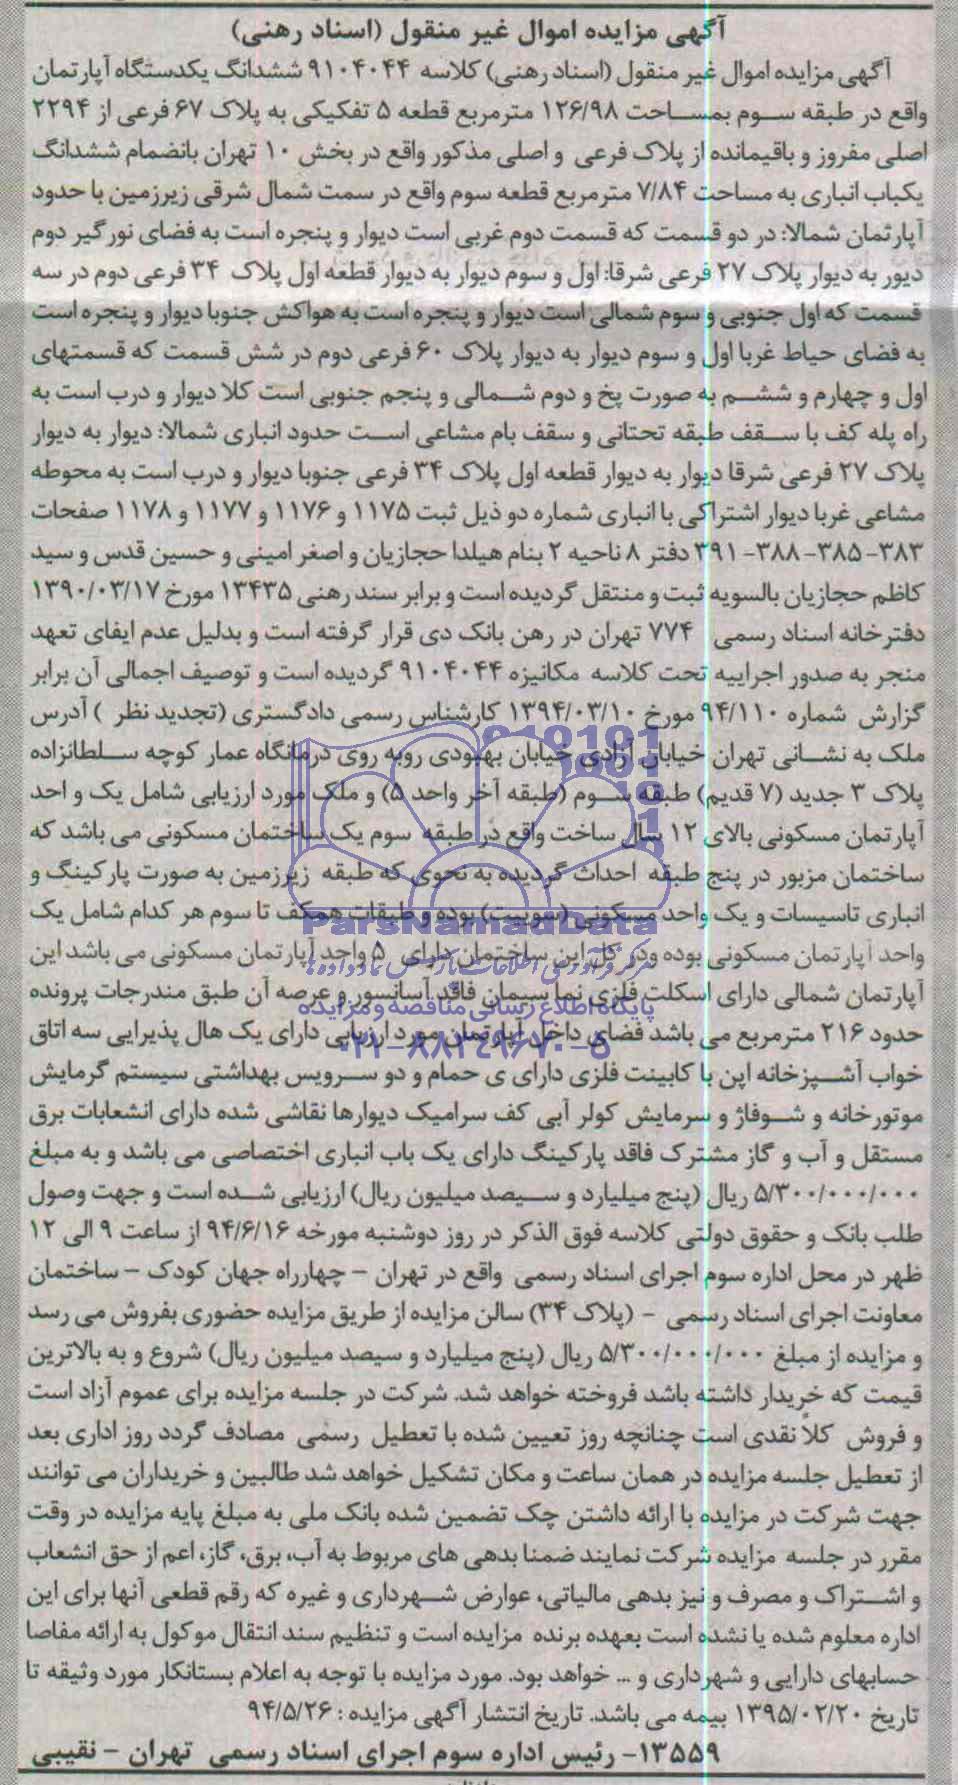 آگهی مزایده اموال غیر منقول (اسناد رهنی)
آگهی مزایده اموال غیر منقول (اسناد رهنی) کلاسه ۹۱۰۴۰۴۴ ششدانگ یکدستگاه آپارتمان
واقع در طبقه سوم بمساحت ۱۲۶/۹۸ مترمربع قطعه ۵ تفکیکی به پلاک ۶۷ فرعی از ۲۲۹۴
اصلی مفروز و باقیمانده از پلاک فرعی و اصلی مذکور واقع در بخش ۱۰ تهران بانضمام ششدانگ
یکباب انباری به مساحت ۷/۸۴ مترمربع قطعه سوم واقع در سمت شمال شرقی زیرزمین با حدود
آپارتمان شمالا: در دو قسمت که قسمت دوم غربی است دیوار و پنجره است به فضای نورگیر دوم
دیور به دیوار پلاک ۲۷ فرعی شرقا: اول و سوم دیوار به دیوار قطعه اول پلاک ۳۴ فرعی دوم در سه
قسمت که اول جنوبی و سوم شمالی است دیوار و پنجره است به هواکش جنوبا دیوار و پنجره است
به فضای حیاط غربا اول و سوم دیوار به دیوار پلاک ۶۰ فرعی دوم در شش قسمت که قسمتهای
اول و چهارم و ششم به صورت پخ و دوم شمالی و پنجم جنوبی است کلا دیوار و درب است به
راه پله کف با سقف طبقه تحتانی و سقف بام مشاعی است حدود انباری شمالا: دیوار به دیوار
پلاک ۲۷ فرعی شرقا دیوار به دیوار قطعه اول پلاک ۳۴ فرعی جنوبا دیوار و درب است به محوطه
مشاعی غربا دیوار اشتراکی با انباری شماره دو ذیل ثبت ۱۱۷۵ و ۱۱۷۶ و ۱۱۷۷ و ۱۱۷۸ صفحات
۳۸۳-۳۸۵-۳۸۸-۳۹۱ دفتر ۸ ناحیه ۲ بنام هیلدا حجازیان و اصغر امینی و حسین قدس و سید
کاظم حجازیان بالسویه ثبت و منتقل گردیده است و برابر سند رهنی ۱۳۴۳۵ مورخ ۱۳۹۰/۰۳/۱۷
دفترخانه اسناد رسمی ۷۷۴ تهران در رهن بانک دی قرار گرفته است و بدلیل عدم ایفای تعهد
منجر به صدور اجراییه تحت کلاسه مکانیزه ۹۱۰۴۰۴۴ گردیده است و توصیف اجمالی آن برابر
گزارش شماره ۹۴/۱۱۰ مورخ ۱۳۹۴/۰۳/۱۰ کارشناس رسمی دادگستری (تجدید نظر ) آدرس
ملک به نشانی تهران خیابان آزادی خیابان بهبودی روبه روی درمانگاه عمار کوچه سلطانزاده
پلاک ۳ جدید (۷ قدیم) طبقه سوم (طبقه آخر واحد ۵) و ملک مورد ارزیابی شامل یک و احد
آپارتمان مسکونی بالای ۱۲ سال ساخت واقع در طبقه سوم یک ساختمان مسکونی می باشد که
ساختمان مزبور در پنج طبقه احداث گردیده به نحوی که طبقه زیرزمین به صورت پارکینگ و
انباری تاسیسات و یک واحد مسکونی (سوییت) بوده و طبقات همکف تا سوم هر کدام شامل یک
واحد آپارتمان مسکونی بوده ودر کل این ساختمان دارای ۵ واحد آپارتمان مسکونی می باشد این
آپارتمان شمالی دارای اسکلت فلزی نما سیمان فاقد آسانسور و عرصه آن طبق مندرجات پرونده
حدود ۲۱۶ مترمربع می باشد فضای داخل آپارتمان مورد ارزیابی دارای یک هال پذیرایی سه اتاق
خواب آشپزخانه اپن با کابینت فلزی دارای ی حمام و دو سرویس بهداشتی سیستم گرمایش
موتورخانه و شوفاژ و سرمایش کولر آبی کف سرامیک دیوارها نقاشی شده دارای انشعابات برق
مستقل و آب و گاز مشترک فاقد پارکینگ دارای یک باب انباری اختصاصی می باشد و به مبلغ
۵/۳۰۰/۰۰۰/۰۰۰ ریال (پنج میلیارد و سیصد میلیون ریال) ارزیابی شده است و جهت وصول
طلب بانک و حقوق دولتی کلاسه فوق الذکر در روز دوشنبه مورخه ۹۴/۶/۱۶ از ساعت ۹ الی ۱۲
ظهر در محل اداره سوم اجرای اسناد رسمی واقع در تهران - چهارراه جهان کودک - ساختمان
معاونت اجرای اسناد رسمی - (پلاک ۳۴) سالن مزایده از طریق مزایده حضوری بفروش می رسد
و مزایده از مبلغ ۵/۳۰۰/۰۰۰/۰۰۰ ریال (پنج میلیارد و سیصد میلیون ریال) شروع و به بالاترین
قیمت که خریدار داشته باشد فروخته خواهد شد. شرکت در جلسه مزایده برای عموم آزاد است
و فروش کلاً نقدی است چنانچه روز تعیین شده با تعطیل رسمی مصادف گردد روز اداری بعد
از تعطیل جلسه مزایده در همان ساعت و مکان تشکیل خواهد شد طالبین و خریداران می توانند
جهت شرکت در مزایده با ارائه داشتن چک تضمین شده بانک ملی به مبلغ پایه مزایده در وقت
مقرر در جلسه مزایده شرکت نمایند ضمنا بدهی های مربوط به آب، برق، گاز، اعم از حق انشعاب
و اشتراک و مصرف و نیز بدهی مالیاتی، عوارض شهرداری و غیره که رقم قطعی آنها برای این
اداره معلوم شده یا نشده است بعهده برنده مزایده است و تنظیم سند انتقال موکول به ارائه مفاصا
حسابهای دارایی و شهرداری و ... خواهد بود. مورد مزایده با توجه به اعلام بستانکار مورد وثیقه تا
تاریخ ۱۳۹۵/۰۲/۲۰ بیمه می باشد. تاریخ انتشار آگهی مزایده : ۹۴/۵/۲۶
۱۳۵۵۹- رئیس اداره سوم اجرای اسناد رسمی تهران - نقیبی
ParsNamadData
مرکز فرآوری اطلاعات پارس نماد داده ها
پایگاه اطلاع رسانی مناقصه و مزایده
۰۲۱-۸۸۳۴۹۶۷۰-۵